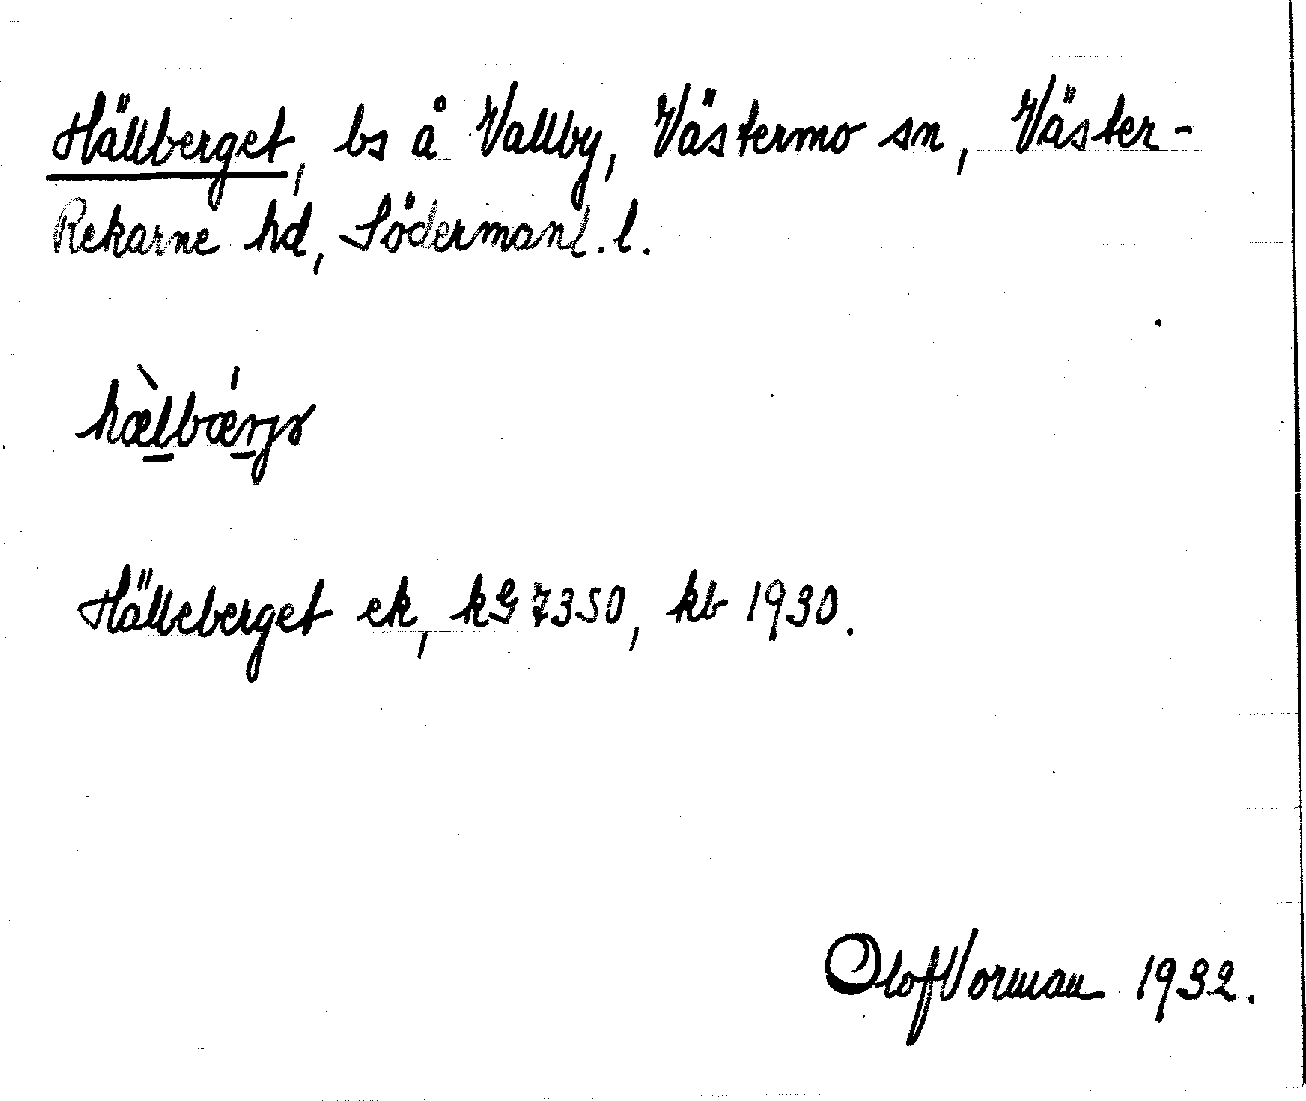 Hällberget, bs å Vallby, Västermo sn, Väster-
Rekarne hd, Södermanl. l.
Hälleberget ek, kG 7350, kb 1930.
Olof Vorman 1932.